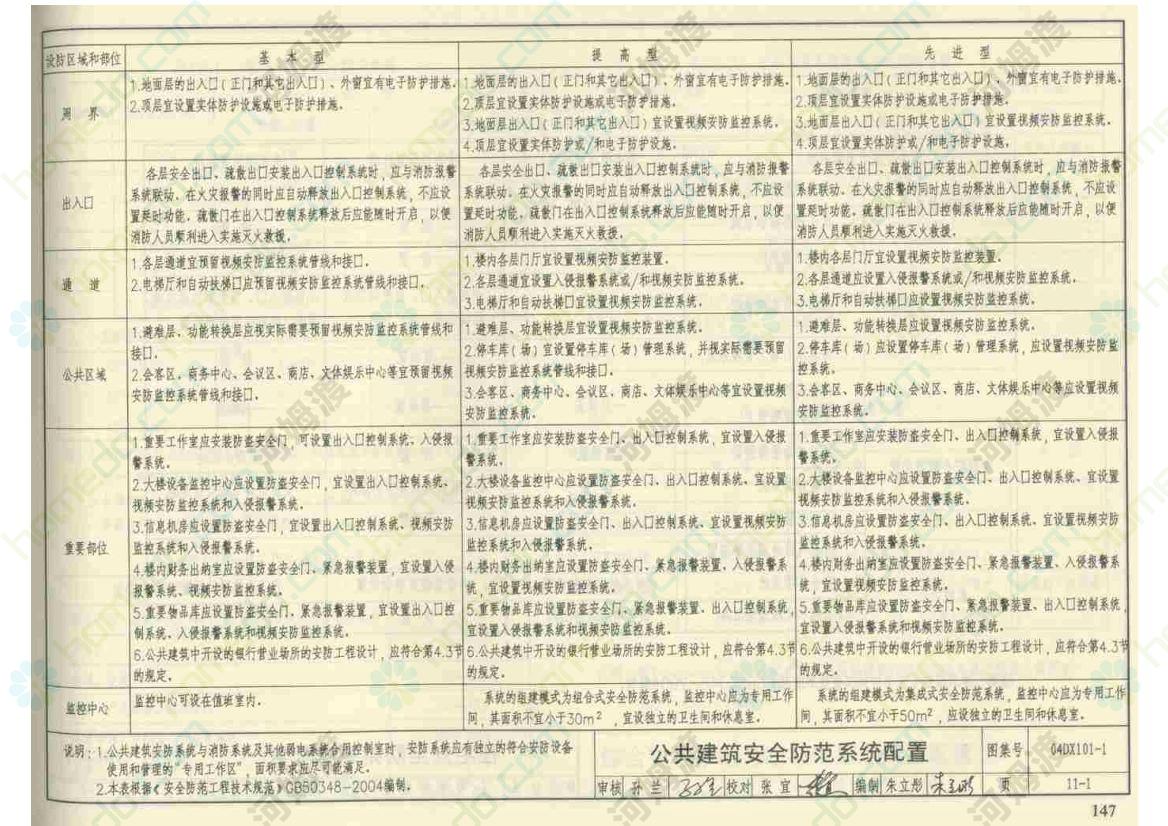 设防区域和部位 基本型 提高型 先进型
周界
1.地面层的出入口(正门和其它出入口)、外窗宜有电子防护措施。
2.顶层宜设置实体防护设施或电子防护措施。
1.地面层的出入口(正门和其它出入口)、外窗宜有电子防护措施。
2.顶层宜设置实体防护设施或电子防护措施。
3.地面层出入口(正门和其它出入口)宜设置视频安防监控系统。
4.顶层宜设置实体防护或/和电子防护设施。
1.地面层的出入口(正门和其它出入口)、外窗宜有电子防护措施。
2.顶层宜设置实体防护设施或电子防护措施。
3.地面层出入口(正门和其它出入口)宜设置视频安防监控系统。
4.顶层宜设置实体防护或/和电子防护设施。
出入口
各层安全出口、疏散出口安装出入口控制系统时,应与消防报警
系统联动。在火灾报警的同时应自动释放出入口控制系统,不应设
置延时功能。疏散门在出入口控制系统释放后应能随时开启,以便
消防人员顺利进入实施灭火救援。
各层安全出口、疏散出口安装出入口控制系统时,应与消防报警
系统联动。在火灾报警的同时应自动释放出入口控制系统,不应设
置延时功能。疏散门在出入口控制系统释放后应能随时开启,以便
消防人员顺利进入实施灭火救援。
各层安全出口、疏散出口安装出入口控制系统时,应与消防报警
系统联动。在火灾报警的同时应自动释放出入口控制系统,不应设
置延时功能。疏散门在出入口控制系统释放后应能随时开启,以便
消防人员顺利进入实施灭火救援。
通道
1.各层通道宜预留视频安防监控系统管线和接口。
2.电梯厅和自动扶梯口应预留视频安防监控系统管线和接口。
1.楼内各层门厅宜设置视频安防监控装置。
2.各层通道宜设置入侵报警系统或/和视频安防监控系统。
3.电梯厅和自动扶梯口宜设置视频安防监控系统。
1.楼内各层门厅宜设置视频安防监控装置。
2.各层通道应设置入侵报警系统或/和视频安防监控系统。
3.电梯厅和自动扶梯口应设置视频安防监控系统。
公共区域
1.避难层、功能转换层应视实际需要预留视频安防监控系统管线和
接口。
2.会客区、商务中心、会议区、商店、文体娱乐中心等宜预留视频
安防监控系统管线和接口。
1.避难层、功能转换层宜设置视频安防监控系统。
2.停车库(场)宜设置停车库(场)管理系统,并视实际需要预留
视频安防监控系统管线和接口。
3.会客区、商务中心、会议区、商店、文体娱乐中心等宜设置视频
安防监控系统。
1.避难层、功能转换层应设置视频安防监控系统。
2.停车库(场)应设置停车库(场)管理系统,应设置视频安防监
控系统。
3.会客区、商务中心、会议区、商店、文体娱乐中心等应设置视频
安防监控系统。
重要部位
1.重要工作室应安装防盗安全门,可设置出入口控制系统、入侵报
警系统。
2.大楼设备监控中心应设置防盗安全门,宜设置出入口控制系统、
视频安防监控系统和入侵报警系统。
3.信息机房应设置防盗安全门,宜设置出入口控制系统、视频安防
监控系统和入侵报警系统。
4.楼内财务出纳室应设置防盗安全门、紧急报警装置,宜设置入侵
报警系统、视频安防监控系统。
5.重要物品库应设置防盗安全门、紧急报警装置,宜设置出入口控
制系统、入侵报警系统和视频安防监控系统。
6.公共建筑中开设的银行营业场所的安防工程设计,应符合第4.3节
的规定。
1.重要工作室应安装防盗安全门、出入口控制系统,宜设置入侵报
警系统。
2.大楼设备监控中心应设置防盗安全门、出入口控制系统、宜设置
视频安防监控系统和入侵报警系统。
3.信息机房应设置防盗安全门、出入口控制系统、宜设置视频安防
监控系统和入侵报警系统。
4.楼内财务出纳室应设置防盗安全门、紧急报警装置、入侵报警系
统,宜设置视频安防监控系统。
5.重要物品库应设置防盗安全门、紧急报警装置、出入口控制系统,
宜设置入侵报警系统和视频安防监控系统。
6.公共建筑中开设的银行营业场所的安防工程设计,应符合第4.3节
的规定。
1.重要工作室应安装防盗安全门、出入口控制系统,宜设置入侵报
警系统。
2.大楼设备监控中心应设置防盗安全门、出入口控制系统、宜设置
视频安防监控系统和入侵报警系统。
3.信息机房应设置防盗安全门、出入口控制系统、宜设置视频安防
监控系统和入侵报警系统。
4.楼内财务出纳室应设置防盗安全门、紧急报警装置、入侵报警系
统,宜设置视频安防监控系统。
5.重要物品库应设置防盗安全门、紧急报警装置、出入口控制系统,
宜设置入侵报警系统和视频安防监控系统。
6.公共建筑中开设的银行营业场所的安防工程设计,应符合第4.3节
的规定。
监控中心
监控中心可设在值班室内。
系统的组建模式为组合式安全防范系统,监控中心应为专用工作
间,其面积不宜小于30m²,宜设独立的卫生间和休息室。
系统的组建模式为集成式安全防范系统,监控中心应为专用工作
间,其面积不宜小于50m²,应设独立的卫生间和休息室。
说明:1.公共建筑安防系统与消防系统及其他弱电系统合用控制室时,安防系统应有独立的符合安防设备
使用和管理的“专用工作区”,面积要求应尽可能满足。
2.本表根据《安全防范工程技术规范》GB50348-2004编制。
公共建筑安全防范系统配置 图集号 04DX101-1
审核 孙兰 校对 张宜 编制 朱立彤 朱立彤 页 11-1
147
河姆渡
homedo.com